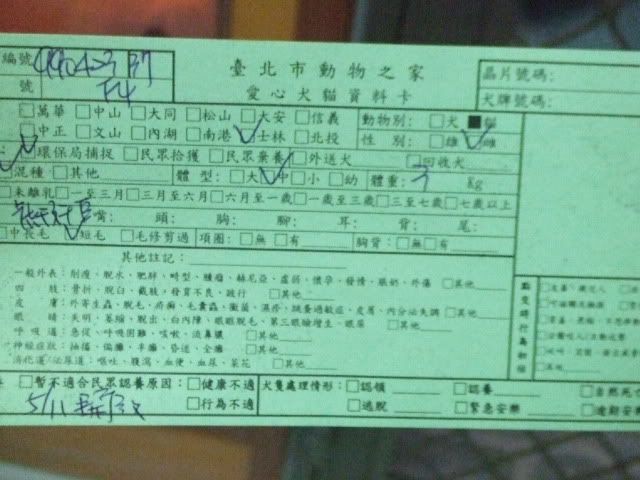 臺北市動物之家
編號 990423 37
愛心犬貓資料卡
晶片號碼:
號 F4
犬牌號碼:
□萬華 □中山 □大同 □松山 □大安 □信義 動物別: □犬 ■貓
□中正 □文山 □內湖 □南港 □士林 □北投 性 別: □雄 □雌
□環保局捕捉 □民眾拾獲 □民眾棄養 □外送犬 □回收犬
□混種 □其他 體 型: □大 □中 □小 □幼 體重: 3 Kg
□未離乳 □一至三月 □三月至六月 □六月至一歲 □一歲至三歲 □三至七歲 □七歲以上
嘴: 頭: 胸: 腳: 耳: 背: 尾:
□中長毛 □短毛 □毛修剪過 項圈: □無 □有 胸背: □無 □有
其他註記:
一般外表: 削瘦、脫水、肥胖、畸型、腫瘤、赫尼亞、虛弱、懷孕、發情、脹奶、外傷 □其他
四 肢: 骨折、脫臼、截肢、發育不良、跛行 □其他
皮 膚: 外寄生蟲、脫毛、疥癬、毛囊蟲、黴菌、濕疹、跳蚤過敏症、皮屑、內分泌失調 □其他
眼 睛: 失明、萎縮、脫出、白內障、眼瞼脫毛、第三眼瞼增生、眼屎 □其他
呼吸道: 急促、呼吸困難、咳嗽、流鼻膿 □其他
神經症狀: 抽搐、偏癱、半癱、昏迷、全癱 □其他
消化道/泌尿道: 嘔吐、腹瀉、血便、血尿、菜花 □其他
點交時行為初評
□暫不適合民眾認養原因: □健康不適 犬隻處理情形: □認領 □認養 □自然死亡
5/11 □行為不適 □逃脫 □緊急安樂 □逾期安樂